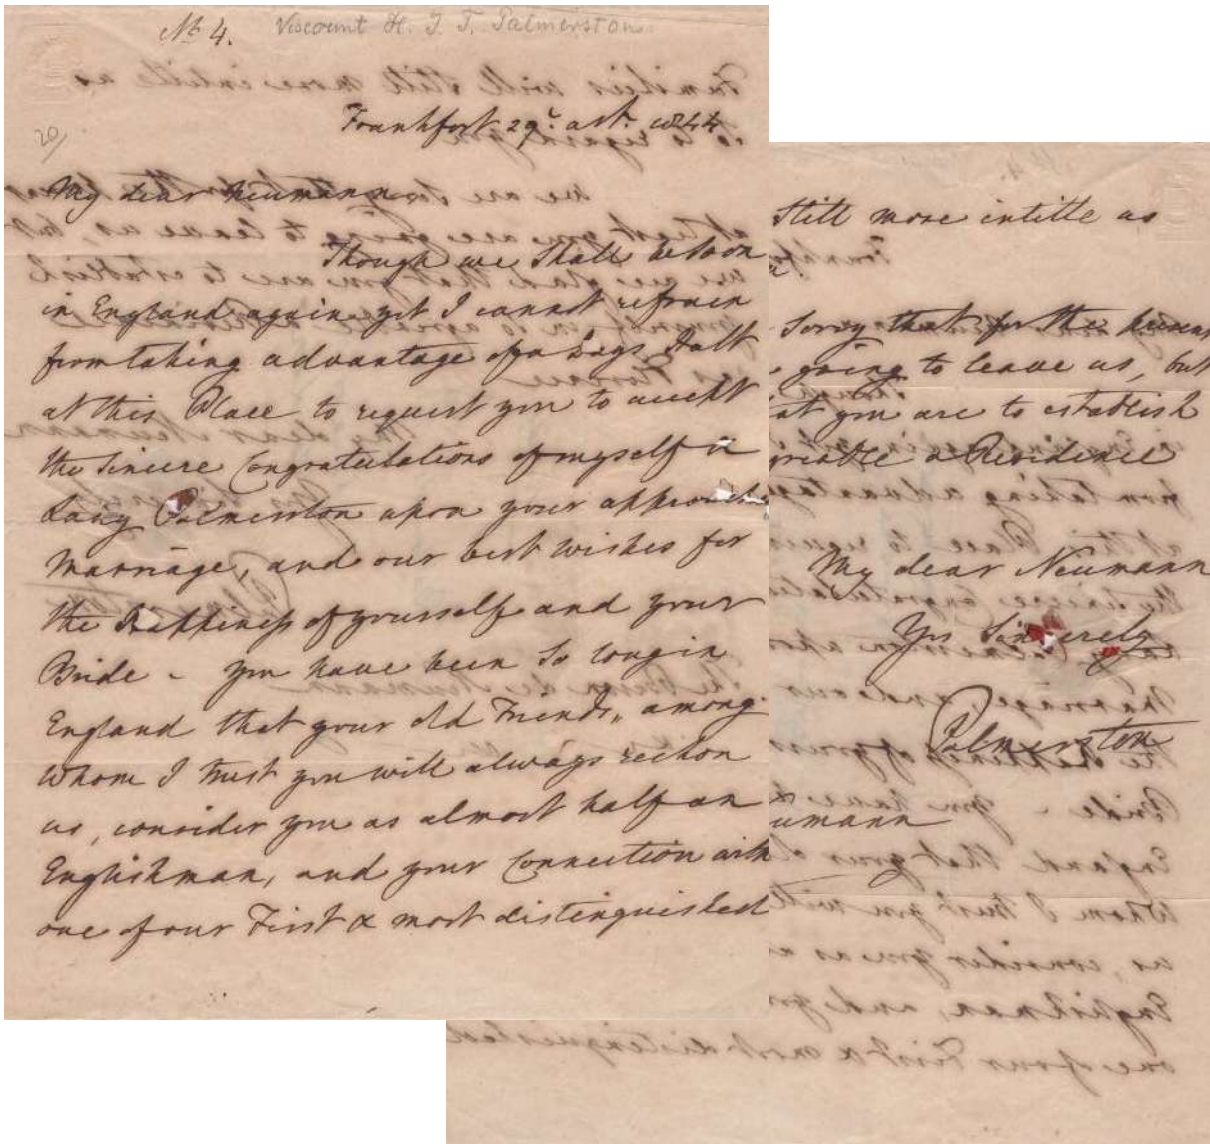 No 4.
Viscount H. J. T. Palmerston.
20/
Frankfort 29. Octr. 1844
My dear Neumann
Though we shall be soon
in England again yet I cannot refrain
from taking advantage of a Days Halt
at this Place to request you to accept
the Sincere Congratulations of myself &
Lady Palmerston upon your approaching
Marriage, and our best wishes for
the Happiness of yourself and your
Bride - you have been so long in
England that your old Friends, among
whom I trust you will always reckon
us, consider you as almost half an
Englishman, and your Connection with
one of our First & most distinguished
still more intitle us
Sorry that for the present
going to leave us, but
at you are to establish
greeable a Residence
My dear Neumann
Yrs Sincerely
Palmerston
eumann